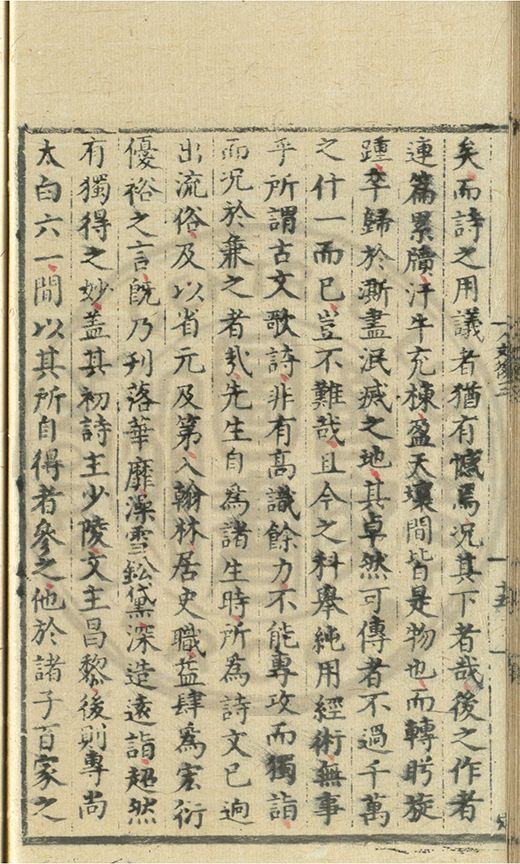 矣而詩之用議者猶有憾焉况其下者哉後之作者
連篇累牘汗牛充棟盈天壤間皆是物也而轉眄旋
踵卒歸於澌盡泯滅之地其卓然可傳者不過千萬
之什一而已豈不難哉且今之科舉純用經術無事
乎所謂古文歌詩非有高識餘力不能專攻而獨詣
而况於兼之者乳先生自為諸生時所為詩文已逈
出流俗及以省元及第入翰林居史職益肆為宏衍
優裕之言旣乃刋落華靡澡雪鈆黛深造遠詣超然
有獨得之妙盖其初詩主少陵文主昌黎後則專尚
太白六一間以其所自得者參之他於諸子百家之